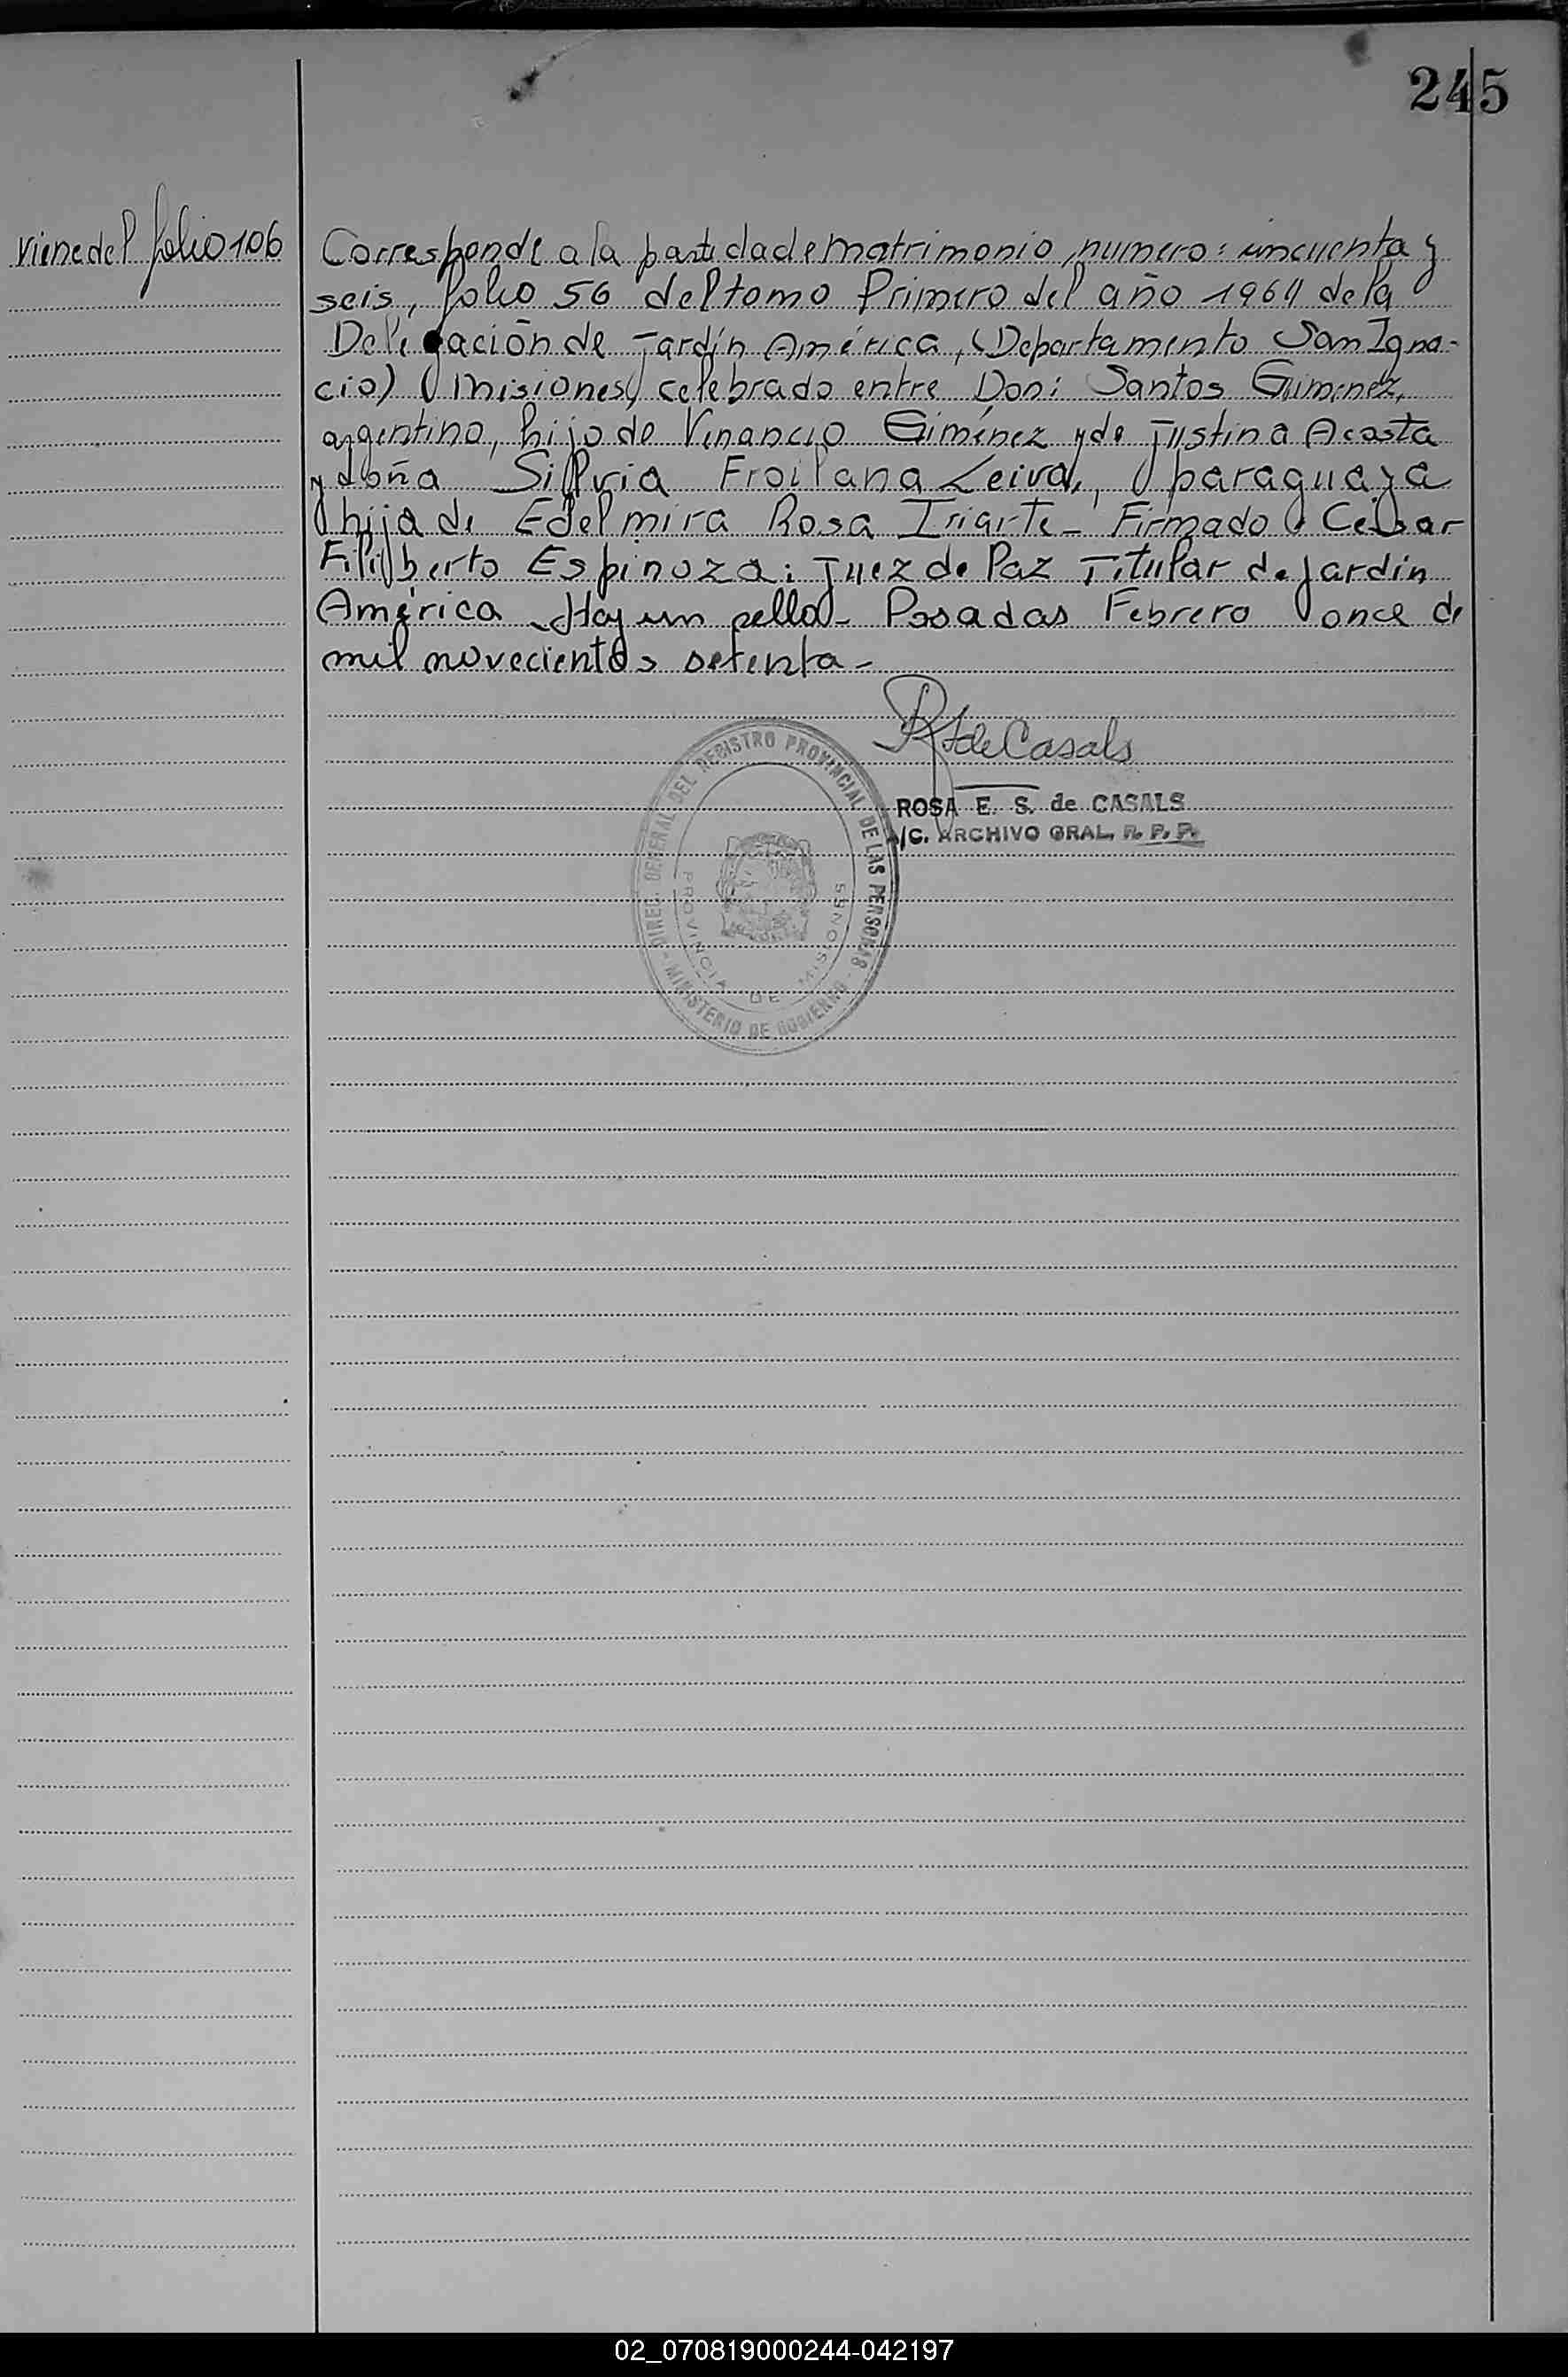 245
viene del folio 106
Corresponde a la partida de matrimonio, numero: cincuenta y
seis, folio 56 del tomo Primero del año 1964 de la
Delegación de Jardín América, (Departamento San Igna-
cio) (Misiones) celebrado entre Don: Santos Gimenez,
argentino, hijo de Venancio Giménez y de Justina Acosta
y doña Silvia Froilana Leiva, paraguaya
hija de Edelmira Rosa Iriarte - Firmado Cesar
Filiberto Espinoza: Juez de Paz Titular de Jardín
América - Hay un sello - Posadas Febrero once de
mil novecientos setenta -
de Casals
ROSA E. S. de CASALS
A/C. ARCHIVO GRAL. R. P. P.
DIREC. GENERAL DEL REGISTRO PROVINCIAL DE LAS PERSONAS
- MINISTERIO DE GOBIERNO -
PROVINCIA DE MISIONES
02_070819000244-042197